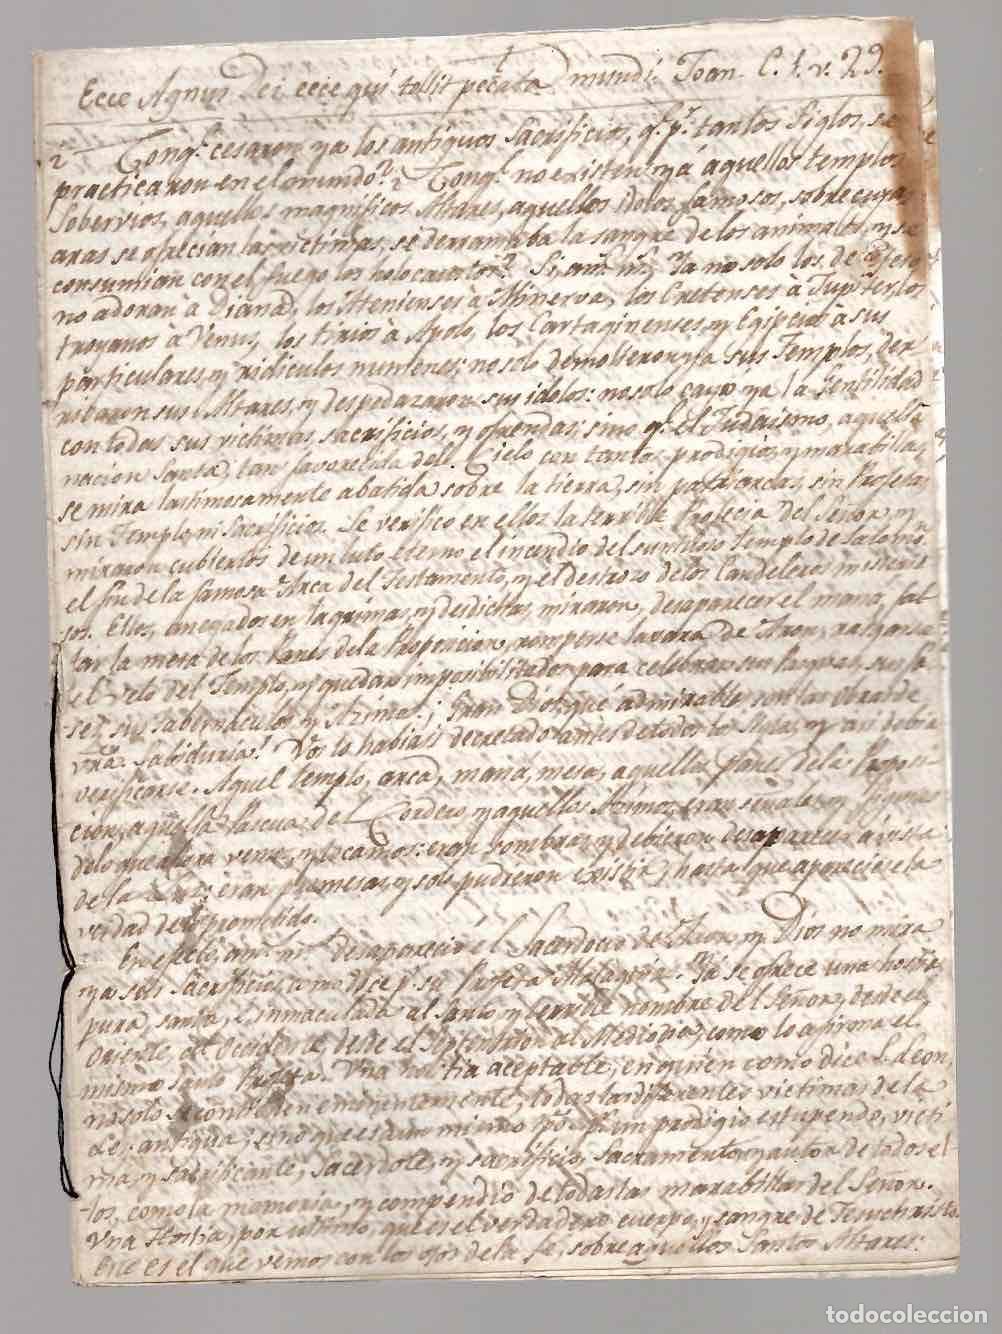 †
Ecce Agnus Dei ecce qui tollit pecata mundi. Joan. C. 1. v. 29.
¿Conq.e cesaron ya los antiguos Sacrificios, q.e p.r tantos Siglos se
practicaron en el mundo? ¿Conq.e no existen yá aquellos templos
sobervios, aquellos magnificos Altares, aquellos idolos famosos, sobre cuyas
aras se ofrecian las victimas, se derramaba la sangre de los animales, y se
consumian con el fuego los holocaustos? Si, am. m.s Ya no solo los de Efeso
no adoran à Diana, los Atenienses à Minerva, los Cretenses à Jupiter, los
troyanos à Venus, los tirios à Apolo, los Cartaginenses, y Egipcios à sus
particulares, y ridiculos numenes: no solo demolieron ya sus Templos, der
ribaron sus Altares, y despedazaron sus idolos: no solo cayo ya la Gentilidad
con todas sus victimas, sacrificios, y ofrendas; sino q.e el Judaismo, aquella
nacion santa, tan favorecida del Cielo con tantos prodigios, y marabillas,
se mira lastimosamente abatida sobre la tierra, sin patriarcas, sin Profetas
sin Templo, ni Sacrificios. Se verifico en ellos la terrible Profecia del Señor, y
miraron cubiertos de un luto eterno el incendio del sumtuoso Templo de Salomon
el fin de la famosa Arca del Testamento, y el destrozo de los Candeleros misterio
sos. Ellos, anegados en lagrimas, y desdichas, miraron desaparecer el mana, fal
tar la mesa de los Panes de la Proposicion, romperse la vara de Aron, rasgarse
el velo del Templo, y quedar imposibilitados para celebrar sus Pasquas, sus fa
ses, sus tabernaculos, y Azimos. ¡Gran Dios, qué admirables son las obras de
v͞ra Sabiduria! Vos lo habiais decretado antes de todos los Siglos, y asi debia
verificarse. Aquel templo, arca, mana, mesa, aquellos Panes de la Proposi
cion, aquella Pascua del Cordero, y aquellos Azimos, eran señales, y figuras
de lo que ahora vemos, y tocamos: eran sombras, y debieron desaparecer à vista
de la Luz: eran promesas, y solo pudieron existir, hasta que apareciese la
verdad de lo prometido.
En efecto, am. m.s desaparecio el Sacerdocio de Aron, y Dios no mira
ya sus Sacrificios, como dice p.r su Profeta Malaquias. Yá se ofrece una hostia
pura, santa, é inmaculada al Santo, y terrible nombre del Señor, desde el
Oriente, al Occidente, desde el Septentrion al Mediodia, como lo afirma el
mismo Santo Profeta. Una hostia aceptable, en quien como dice S. Leon
no solo se contienen eminentemente, todas las diferentes victimas de la
Ley antigua; sino que es a un mismo tpo p.r un prodigio estupendo, victi
ma, y sacrificante, sacerdote, y sacrificio, Sacramento, y autor de todos el-
-los, como la memoria, y compendio de todas las marabillas del Señor.
Una Hostia, por ultimo, que es el verdadero cuerpo, y sangre de Jesuchristo
Que es el que vemos con los ojos de la fe, sobre aquellos Santos Altares:
todocoleccion